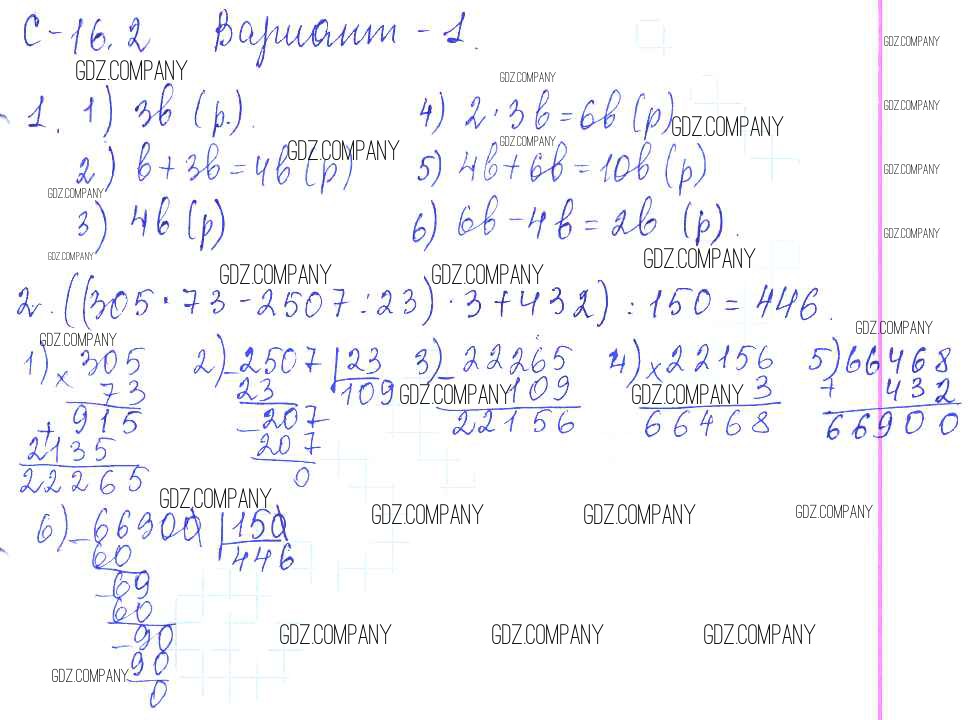 С-16.2 Вариант-1.
GDZ.COMPANY GDZ.COMPANY GDZ.COMPANY
1. 1) 3b (р.). 4) 2·3b=6b (р)
GDZ.COMPANY GDZ.COMPANY GDZ.COMPANY GDZ.COMPANY
2) b+3b=4b (р) 5) 4b+6b=10b (р)
GDZ.COMPANY GDZ.COMPANY
3) 4b (р) 6) 6b-4b=2b (р).
GDZ.COMPANY GDZ.COMPANY GDZ.COMPANY GDZ.COMPANY GDZ.COMPANY
2. ((305·73-2507:23)·3+432):150=446.
GDZ.COMPANY GDZ.COMPANY
1) × 305 2) - 2507 | 23 3) - 22265 4) × 22156 5) 66468
73 23 109 109 3 + 432
GDZ.COMPANY GDZ.COMPANY
+ 915 - 207 22156 66468 66900
2135 207
22265 0
GDZ.COMPANY GDZ.COMPANY GDZ.COMPANY GDZ.COMPANY
6) - 66900 | 150
60 446
- 69
60
- 90
GDZ.COMPANY GDZ.COMPANY GDZ.COMPANY
90
GDZ.COMPANY
0